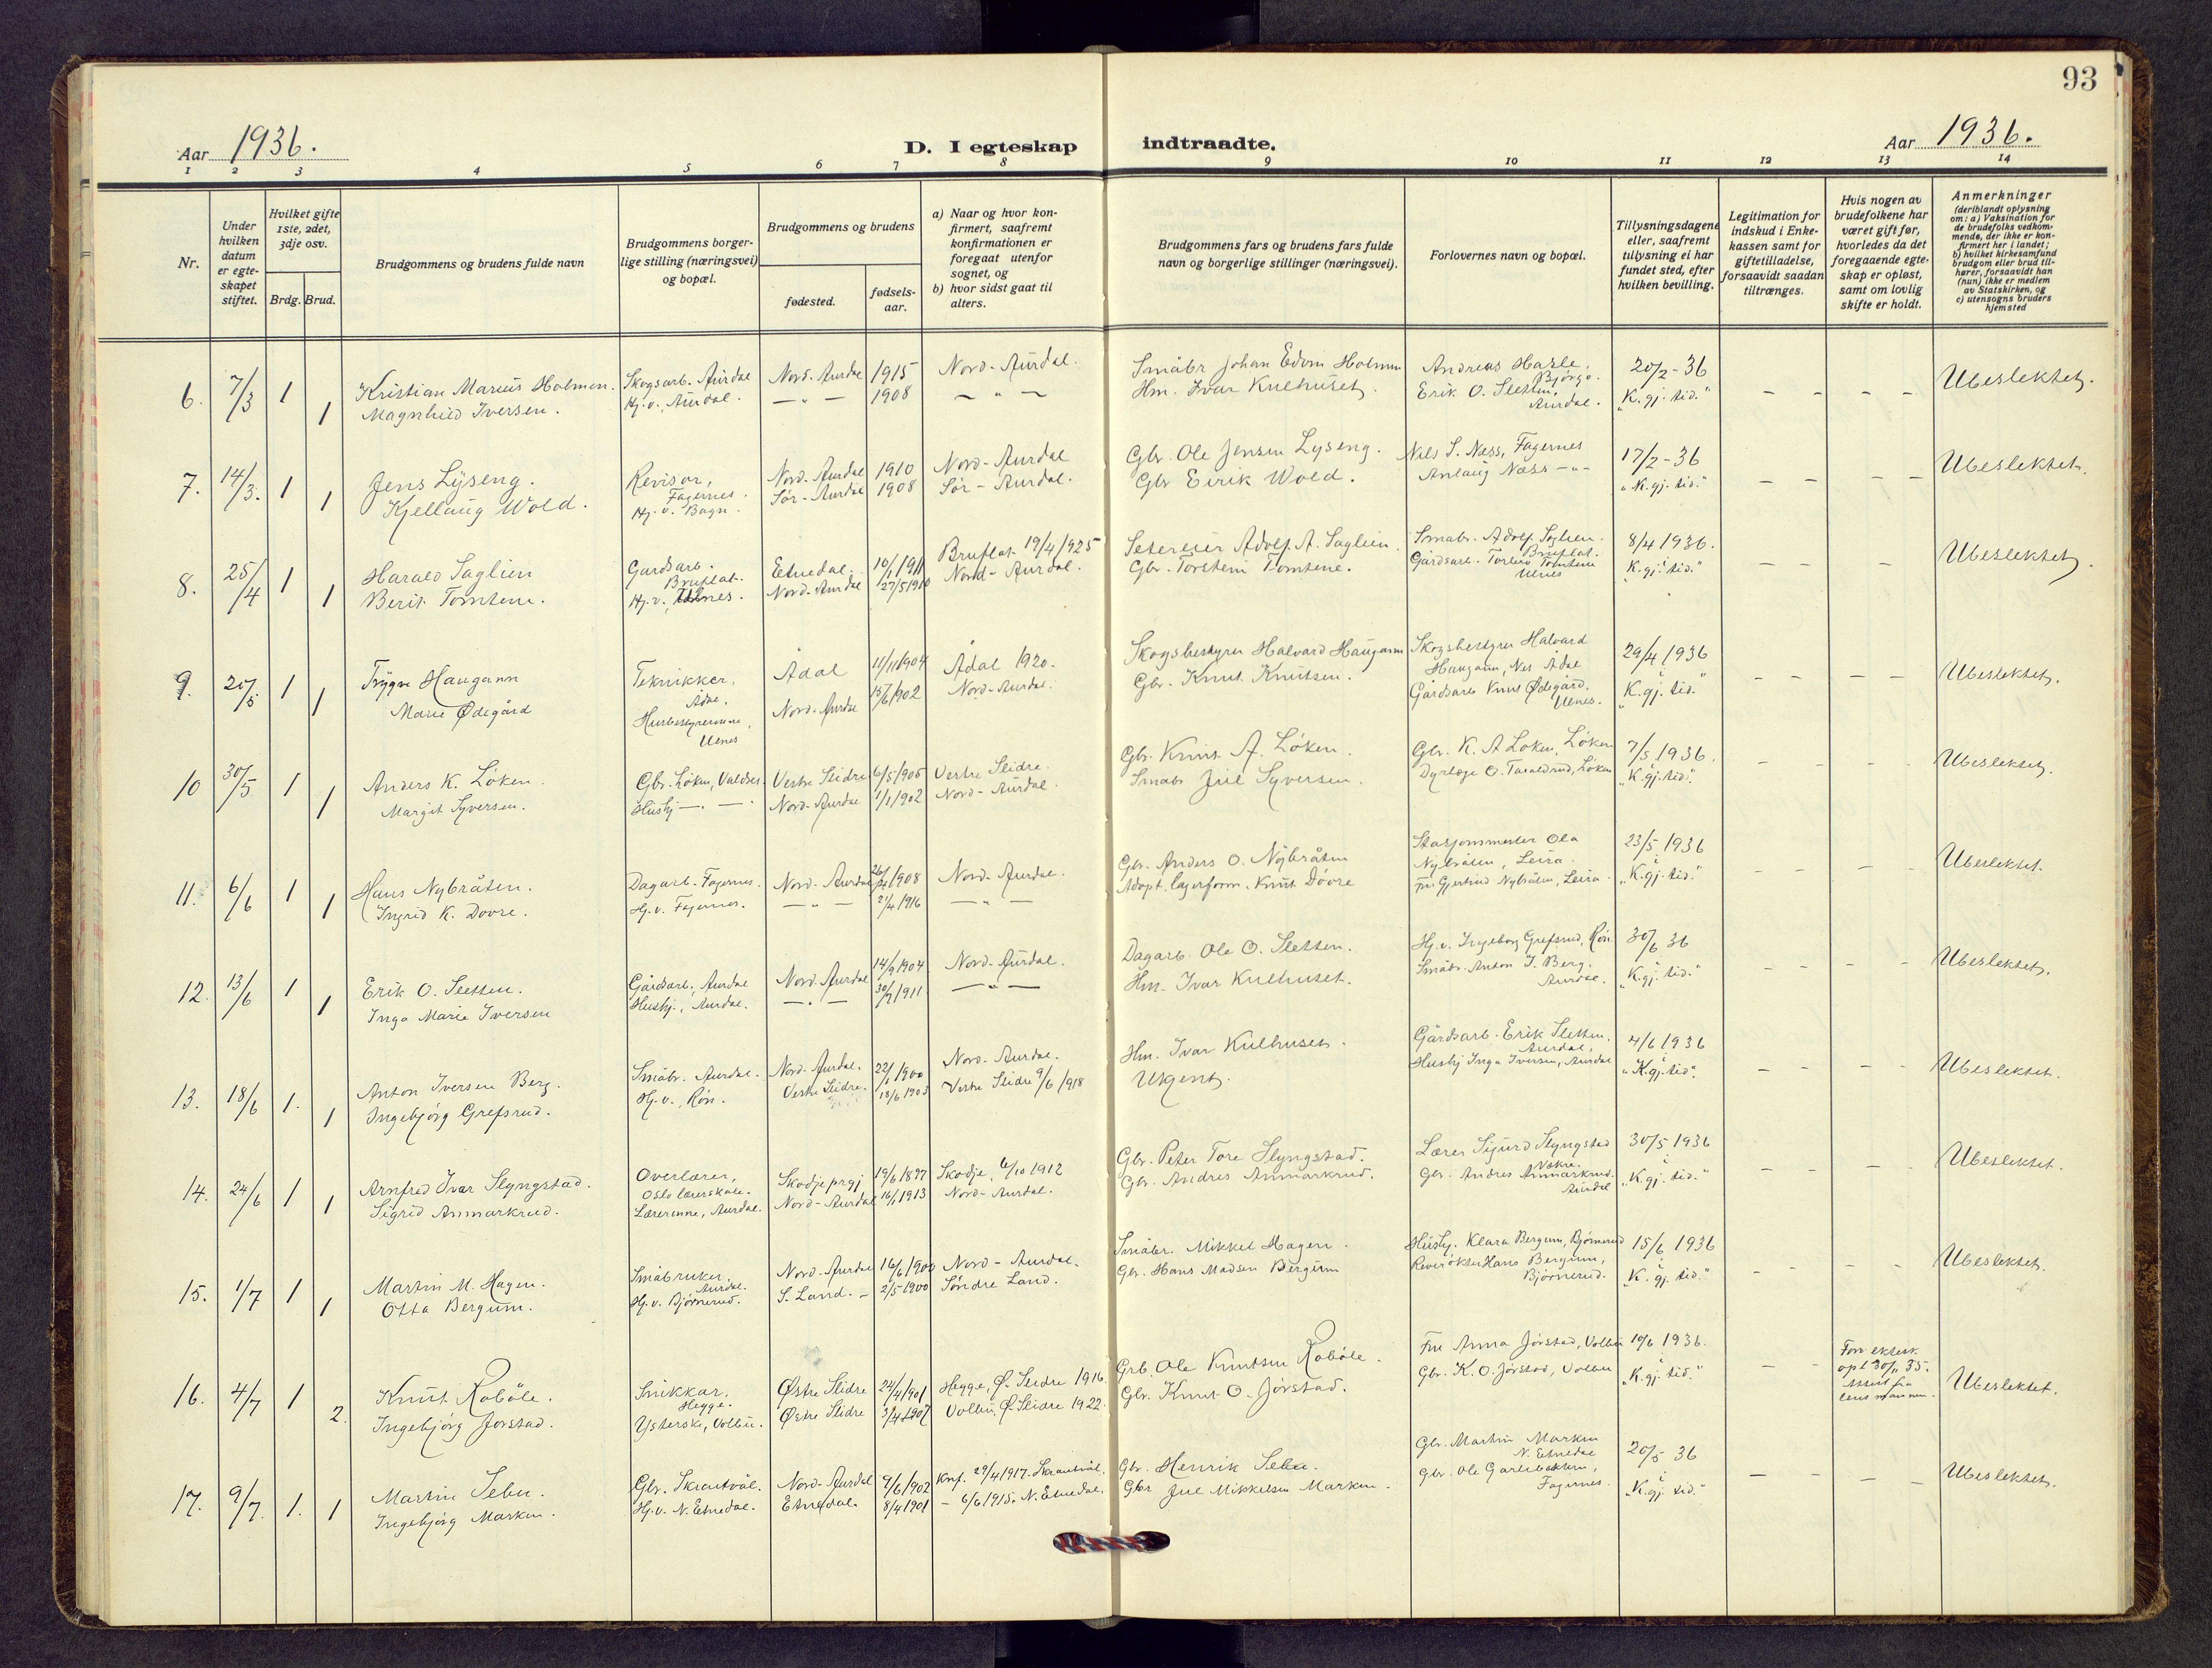 93
Aar 1936.
D. I egteskap indtraadte.
Aar 1936.
1 2 3 4 5 6 7 8 9 10 11 12 13 14
Nr.
Under hvilken datum er egteskapet stiftet.
Hvilket gifte 1ste, 2det, 3dje osv.
Brdg. Brud.
Brudgommens og brudens fulde navn
Brudgommens borgerlige stilling (næringsvei) og bopæl.
Brudgommens og brudens
fødested.
fødselsaar.
a) Naar og hvor konfirmert, saafremt konfirmationen er foregaat utenfor sognet, og
b) hvor sidst gaat til alters.
Brudgommens fars og brudens fars fulde navn og borgerlige stillinger (næringsvei).
Forlovernes navn og bopæl.
Tillysningsdagene eller, saafremt tillysning ei har fundet sted, efter hvilken bevilling.
Legitimation for indskud i Enkekassen samt for giftetilladelse, forsaavidt saadan tiltrænges.
Hvis nogen av brudefolkene har været gift før, hvorledes da det foregaaende egteskap er opløst, samt om lovlig skifte er holdt.
Anmerkninger
(deriblandt oplysning om: a) Vaksination for de brudefolks vedkommende, der ikke er konfirmert her i landet; b) hvilket kirkesamfund brudgom eller brud tilhører, forsaavidt han (hun) ikke er medlem av Statskirken, og c) utensogns bruders hjemsted
6. 7/3 1 Kristian Marius Holmen. Skogsarb. Aurdal Nord-Aurdal 1915 Nord-Aurdal. Småbr Johan Edvin Holmen Andreas Hasle, Bjørgo. 20/2-36 - - - - Ubeslektet.
1 Magnhild Iversen. Hj.v., Aurdal. — " — 1908 — " — Hm. Ivar Kulhuset. Erik O. Sletten, Aurdal. i "K.gj.tid."
7. 14/3. 1 Jens Lyseng. Revisor, Fagernes. Nord-Aurdal 1910 Nord-Aurdal Gbr. Ole Jensen Lyseng. Nils S. Næss, Fagernes 17/2-36 - - - - Ubeslektet.
1 Kjellaug Wold. Hj.v. Bagn. Sør-Aurdal 1908 Sør-Aurdal. Gbr Eirik Wold. Anlaug Næss -"- i "K.gj.tid."
8. 25/4 1 Harald Saglien Gardsarb. Bruflat. Etnedal. 10/1 1911 Bruflat 19/4/925 Setereier Adolf A. Saglien. Småbr. Adolf Saglien. Bruflat. 8/4 1936. - - - Ubeslektet.
1 Berit Tomtene. Hj.v., Ulnes. Nord-Aurdal 27/5 1910 Nord-Aurdal. Gbr. Torstein Tomtene. Gårdsarb. Torleiv Tomtene Ulnes i "K.gj.tid."
9. 20/5 1 Trygve Haugann Teknikker, Ådal, Ådal 11/11 1904 Ådal 1920. Skogsbestyrer Halvard Haugann Skogsbestyrer Halvard Haugann, Nes Ådal 29/4 1936 - - - - Ubeslektet.
1 Marie Ødegård Husbestyrerinne, Ulnes Nord-Aurdal 15/6 1902 Nord-Aurdal. Gbr. Knut Knutsen. Gårdsarb Knut Ødegård, Ulnes. i "K.gj.tid."
10 30/5 1 Anders K. Løken. Gbr. Løken, Valdres Vestre Slidre 6/5 1905 Vestre Slidre. Gbr. Knut A. Løken. Gbr. K. A Løken, Løken 7/5 1936. - - - - Ubeslektet.
1 Margit Syversen. Hushj — " — Nord-Aurdal 1/1 1902 Nord-Aurdal. Småbr Juul Syversen. Dyrlæge O. Taraldrud, Løken i "K.gj.tid."
11. 6/6 1 Hans Nybråten. Dagarb. Fagernes. Nord-Aurdal 1908 Nord-Aurdal. Gbr. Anders O. Nybråten Stasjonsmester Ola Nybråten, Leira. 23/5 1936 - - - - Ubeslektet.
1 Ingrid K. Dovre. Hj.v. Fagernes. — " — 2/4 1916 — " — Adopt. lagerform. Knut Dovre Fru Gjertrud Nybråten, Leira. i "K.gj.tid."
12. 13/6 1 Erik O. Sletten. Gårdsarb., Aurdal Nord-Aurdal 14/9 1904 Nord-Aurdal. Dagarb. Ole O. Sletten. Hj.v. Ingeborg Grefsrud, Røn 30/6 36 - - - - Ubeslektet.
1 Inga Marie Iversen Hushj., Aurdal. — " — 30/7 1911 — " — Hm. Ivar Kulhuset. Småbr. Anton I. Berg, Aurdal. i "K.gj.tid."
13. 18/6 1. Anton Iversen Berg. Småbr. Aurdal. Nord-Aurdal. 22/1 1900 Nord-Aurdal. Hm. Ivar Kulhuset. Gårdsarb. Erik Sletten, Aurdal, 4/6 1936 - - - - Ubeslektet.
1 Ingebjørg Grefsrud. Hj.v., Røn. Vestre Slidre. 18/6 1903 Vestre Slidre 9/6 1918 Ukjent. Hushj Inga Iversen, Aurdal i "K.gj.tid".
14. 24/6 1 Arnfred Ivar Slyngstad. Overlærer, Oslo lærerskole. Skodje prgj 19/6 1897 Skodje, 6/10 1912 Gbr. Peter Tore Slyngstad. Lærer Sigurd Slyngstad Vøkre. 30/5 1936 - - - - Ubeslektet.
1 Sigrid Anmarkrud. Lærerinne, Aurdal. Nord-Aurdal 16/1 1913 Nord-Aurdal. Gbr. Andres Anmarkrud. Gbr. Andres Anmarkrud. Aurdal i "K.gj.tid."
15. 1/7 1 Martin M. Hagen. Småbruker, Aurdal. Nord-Aurdal 16/6 1900 Nord-Aurdal. Småbr. Mikkel Hagen. Hushj. Klara Bergum, Bjørnerud 15/6 1936 - - - - Ubeslektet.
1 Otta Bergum. Hj.v. Bjørnerud. S. Land. - 2/5 1900 Søndre Land. Gbr. Hans Madsen Bergum Hans Bergum, Bjørnerud. i "K.gj.tid."
16. 4/7 1 Knut Robøle. Snikkar, Hegge. Østre Slidre 24/4 1901 Hegge, Ø. Slidre 1916. Grb. Ole Knutsen Robøle. Fru Anna Jørstad, Volbu 10/6 1936. - - Forr ektesk. opl 30/11 35. Attest fra lensmannen. Ubeslektet.
2. Ingebjørg Jørstad. Ysterske, Volbu. Østre Slidre 3/4 1907 Volbu, Ø. Slidre 1922. Gbr. Knut O. Jørstad. Gbr. K. O. Jørstad, Volbu i "K.gj.tid."
17. 9/7. 1. Martin Sebu. Gbr. Skrautvål. Nord-Aurdal 9/6 1902 Konf. 29/4 1917. Skrautvål. Gbr. Henrik Sebu. Gbr. Martin Marken N. Etnedal 20/5 36 - - - - Ubeslektet.
1 Ingebjørg Marken. Hj.v. N. Etnedal. Etnedal. 8/4 1901 - 6/6 1915. N. Etnedal. Gbr Juul Mikkelsen Marken. Gbr. Ole Garlibakken, Fagernes. i "K.gj.tid."